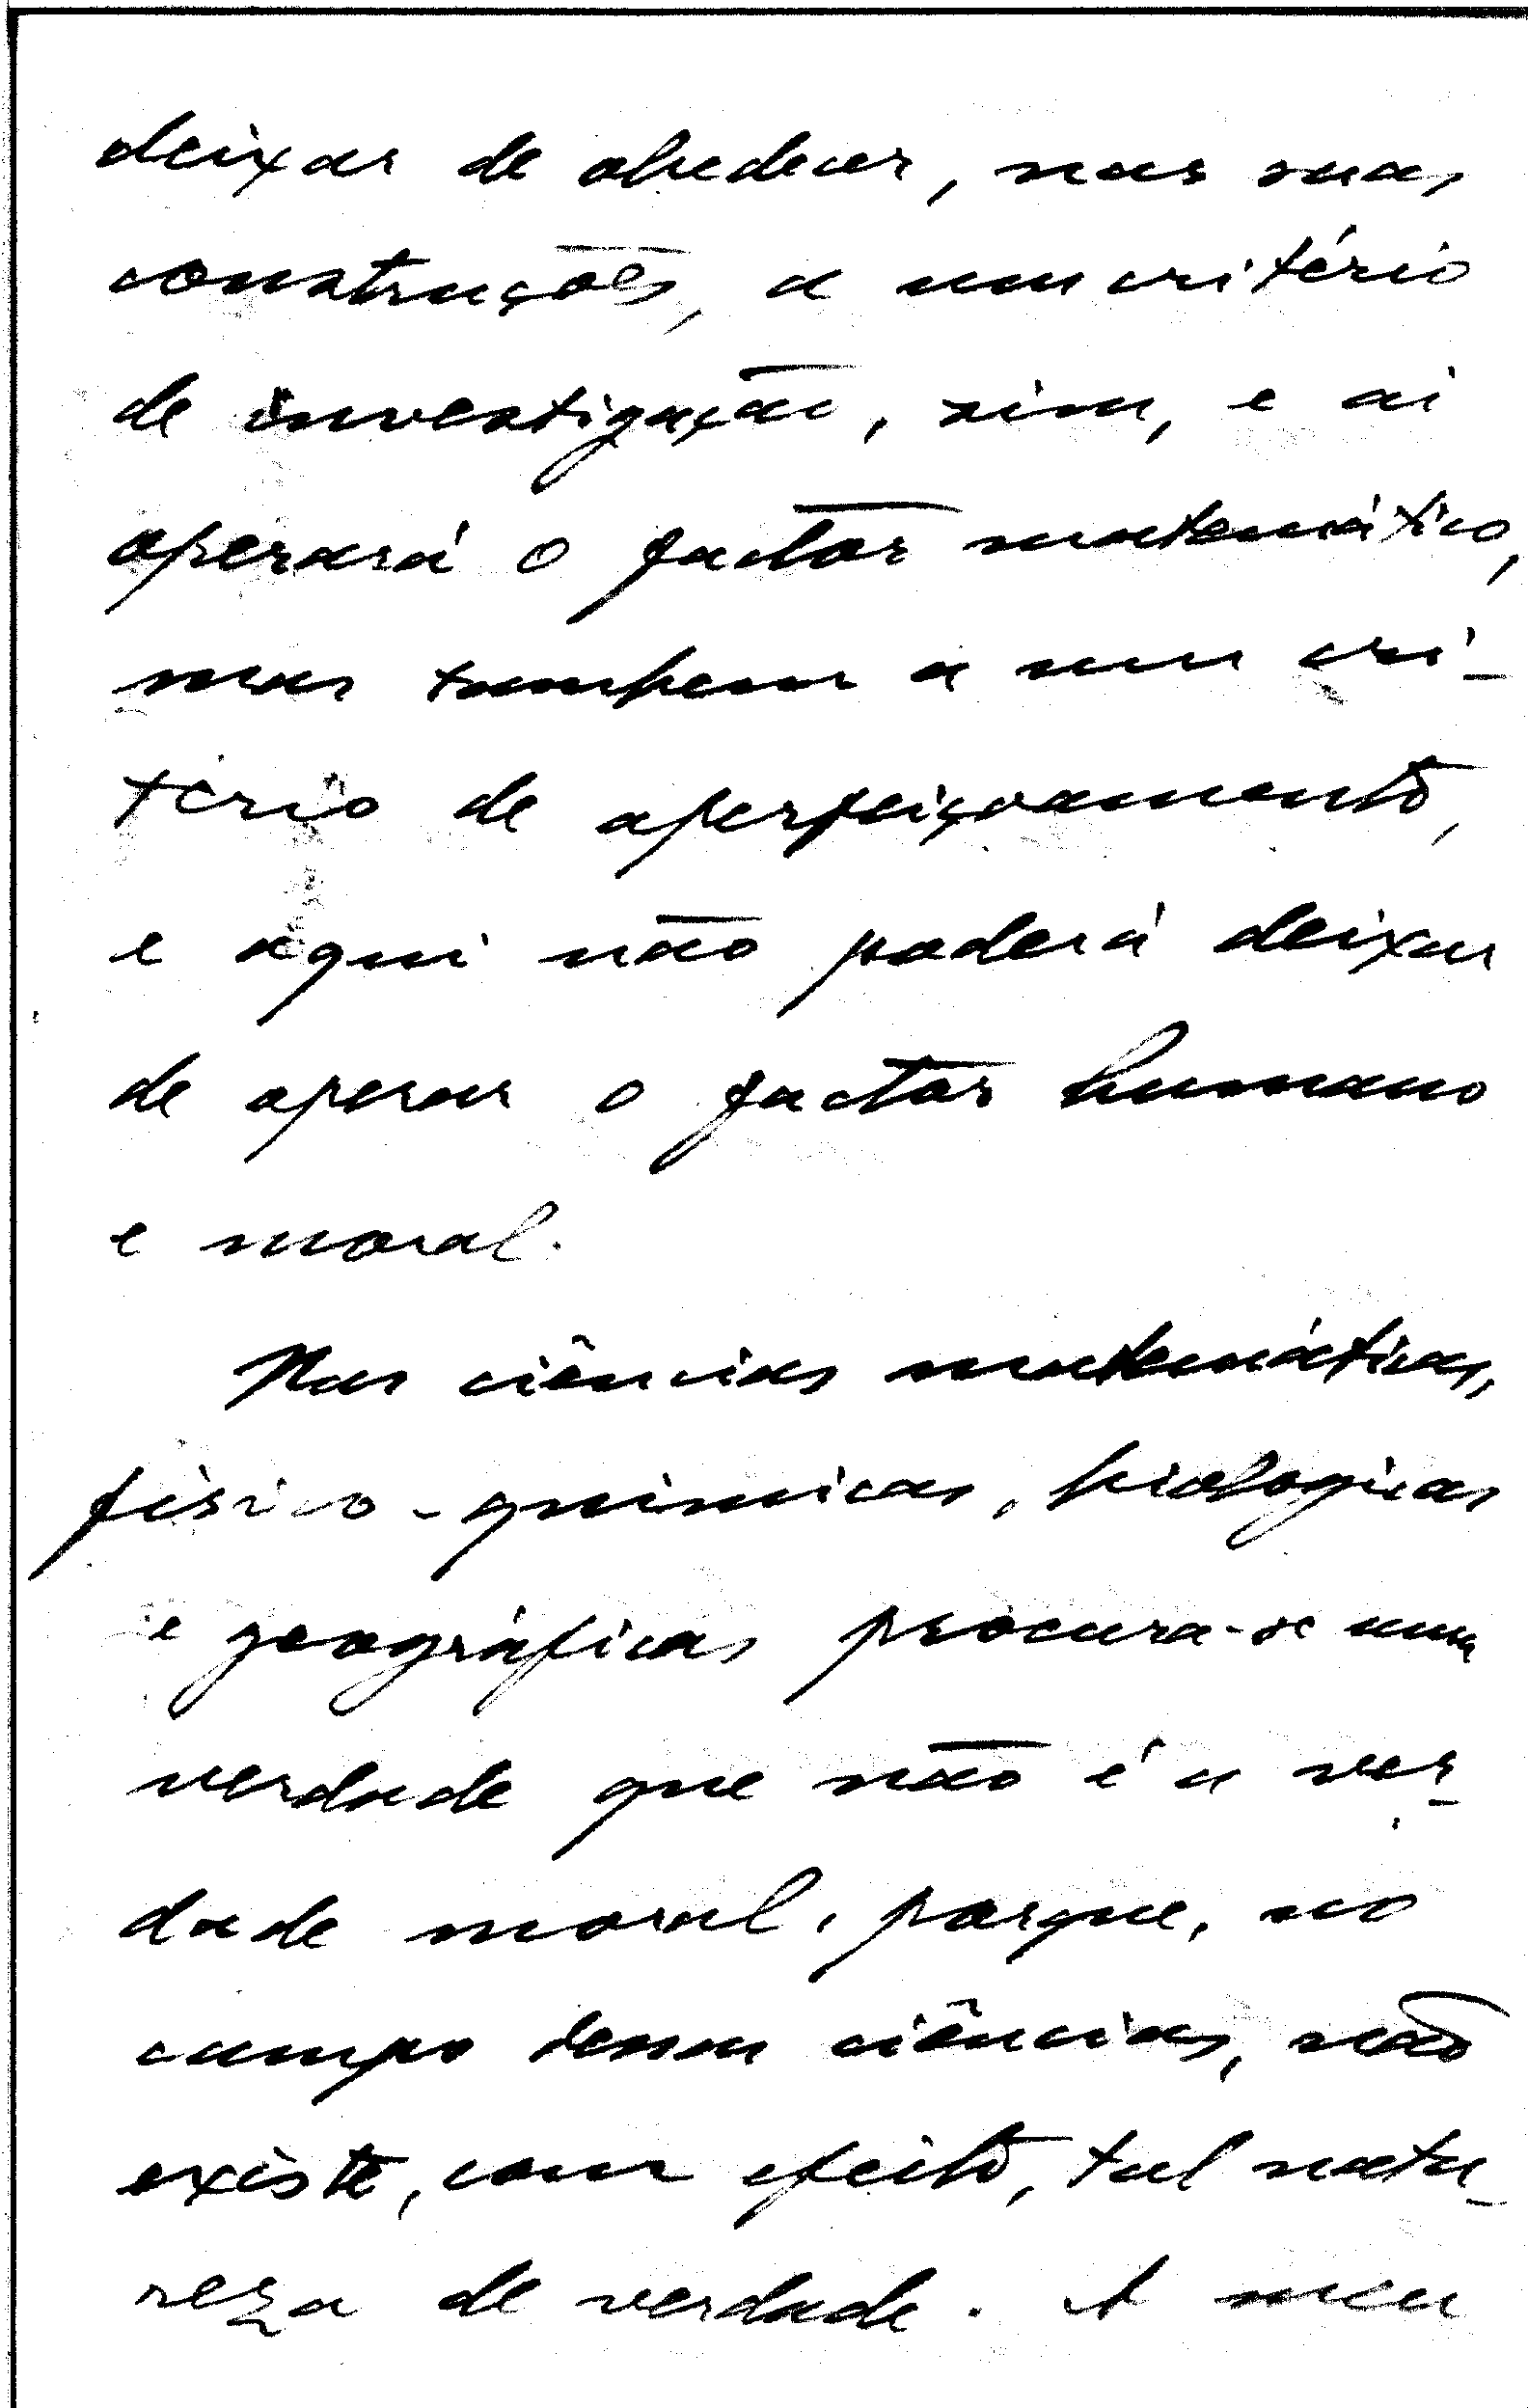 deixar de obedecer, nas suas
construções, a um critério
de investigação, sim, e aí
operará o factor matemático,
mas tambem a um cri-
tério de aperfeiçoamento,
e aqui não poderá deixar
de operar o factor humano
e moral.
Nas ciências matemáticas,
físico-químicas, biologicas
e geográficas procura-se uma
verdade que não é a ver-
dade moral, porque, no
campo dessas ciências, não
existe, com efeito, tal natu-
reza de verdade. A meu